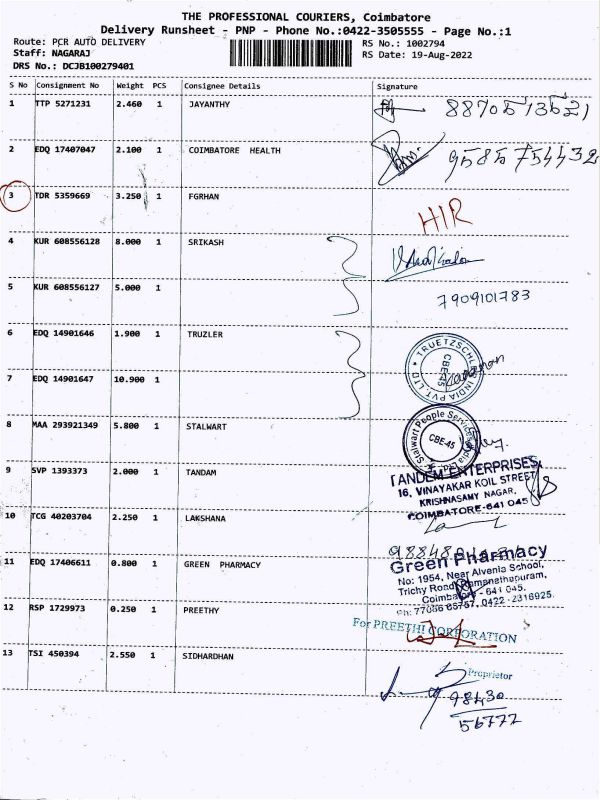 THE PROFESSIONAL COURIERS, Coimbatore
Delivery Runsheet - PNP - Phone No.:0422-3505555 - Page No.:1
Route: PCR AUTO DELIVERY
Staff: NAGARAJ
DRS No.: DCJB100279401
RS No.: 1002794
RS Date: 19-Aug-2022
S No Consignment No Weight PCS Consignee Details Signature
1 TTP 5271231 2.460 1 JAYANTHY 8870513521
2 EDQ 17407047 2.100 1 COIMBATORE HEALTH 9585754432
3 TDR 5359669 3.250 1 FGRHAN HIR
4 KUR 608556128 8.000 1 SRIKASH
5 KUR 608556127 5.000 1 7909101783
6 EDQ 14901646 1.900 1 TRUZLER
TRUETZSCHLER INDIA PVT. LTD
CBE-45
7 EDQ 14901647 10.900 1
8 MAA 293921349 5.800 1 STALWART
Stalwart People Services India Ltd
CBE-45
9 SVP 1393373 2.000 1 TANDAM
TANDEM ENTERPRISES
16, VINAYAKAR KOIL STREET,
KRISHNASAMY NAGAR,
COIMBATORE-641 045
10 TCG 40203704 2.250 1 LAKSHANA
11 EDQ 17406611 0.800 1 GREEN PHARMACY
Green Pharmacy
No: 1954, Near Alvenia School,
Trichy Road, Ramanathapuram,
Coimbatore - 641 045.
Ph: 77086 65757, 0422-2316925.
12 RSP 1729973 0.250 1 PREETHY
For PREETHI CORPORATION
Proprietor
13 TSI 450394 2.550 1 SIDHARDHAN
98430
56772